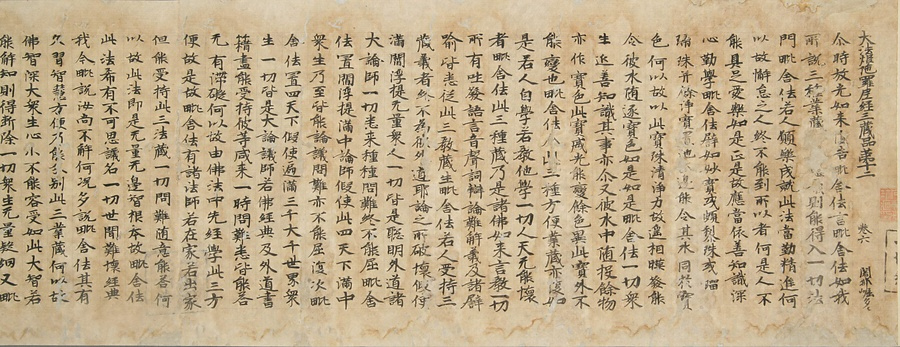 大法炬陀羅尼經三蔵品第十二 卷六
尒時放光如来復告毗舍佉言毗舍佉如我
所說三種業藏 則能得入一切法
門毗舍佉若人願樂成就此法當勤精進何
以故懈怠之人終不能到所以者何是人不
能具足愛樂如是正是故應當依善知識深
心勤學毗舍佉辟如妙寶或頗梨珠或瑠
璃珠并餘淨寶置 邊能令其水同於寶
色何以故以此寶珠清淨力故遥相暎發能
令彼水随逐寶色如是如是毗舍佉一切衆
生近善知識其事亦尒又彼水中随投餘物
亦作寶色此寶威光能變餘色異此寶外不
能變也毗舍佉入此三種方便業藏亦復如
是若人自學若教他學一切人天无能懷
者毗舍佉此三種藏乃是諸佛如来言教一切
所有吐發語言音聲詞辯論難解義及諸辟
喻皆悉從此三教藏生毗舍佉若人受持三
教藏者終不為彼外道耶論之所破壞假使
滿閻浮提无量衆人一切皆是聡明外道諸
大論師一切悉来種種問難終不能屈毗舍
佉置閻浮提滿中論師假使此四天下滿中
衆生乃至皆能論議問難亦不能屈復次毗
舍佉置四天下假使遍滿三千大千世界衆
生一切皆是大論議師若佛經典及外道書
籍盡能受持彼等咸来一時問難悉皆能荅
无有滞礙何以故由佛法中先經學此三方
便故是故毗舍佉有諸法師若在家若出家
但能受持此三法藏一切問難随意能荅何
以故此法即是无量无邊智根本故毗舍佉
此法希有不可思議名一切世間難壞經典
我今略說汝尚不解何況多說毗舍佉其有
久習智慧方便乃能分別此三業藏何以故
佛智深大衆生心小不能容受如此大智若
能解知則得断除一切衆生无量疑網又毗